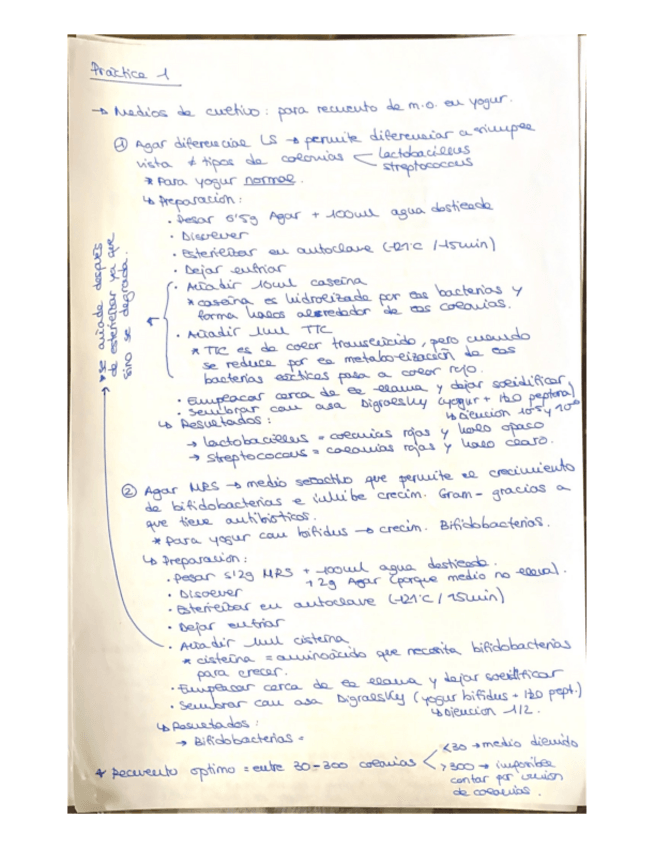 Práctica 1
→ Medios de cultivo: para recuento de m.o. en yogur.
① Agar diferencial LS → permite diferenciar a simple
vista ≠ tipos de colonias < lactobacillus
streptococcus
* Para yogur normal.
↳ Preparación:
· Pesar 6'5g Agar + 100ml agua destilada
· Disolver
· Esterilizar en autoclave (121ºC / 15min)
· Dejar enfriar
· Añadir 10ml caseína
* caseína es hidrolizada por las bacterias y
forma halos alrededor de las colonias.
· Añadir 1ml TTC
* TTC es de color translúcido, pero cuando
se reduce por la metabolización de las
bacterias lácticas pasa a color rojo.
→ se añade después
de esterilizar ya que
sino se degrada.
· Emplacar cerca de la llama y dejar solidificar
· Sembrar con asa Digralsky (yogur + H2O peptona)
↳ Dilución 10-5 y 10-6
↳ Resultados:
→ Lactobacillus = colonias rojas y halo opaco
→ Streptococcus = colonias rojas y halo claro.
② Agar MRS → medio selectivo que permite el crecimiento
de bifidobacterias e inhibe crecim. Gram- gracias a
que tiene antibióticos.
* Para yogur con bífidus → crecim. Bifidobacterias.
↳ Preparación:
· Pesar 5'2g MRS + 100ml agua destilada.
+ 2g Agar (porque medio no lleva).
· Disolver
· Esterilizar en autoclave (121ºC / 15min)
· Dejar enfriar
· Añadir 1ml cisteína
* cisteína = aminoácido que necesita bifidobacterias
para crecer.
· Emplacar cerca de la llama y dejar solidificar
· Sembrar con asa Digralsky (yogur bífidus + H2O pept.)
↳ Dilución 1/2.
↳ Resultados:
→ Bifidobacterias =
* Recuento óptimo = entre 30-300 colonias < <30 → medio diluido
>300 → imposible
contar por unión
de colonias.